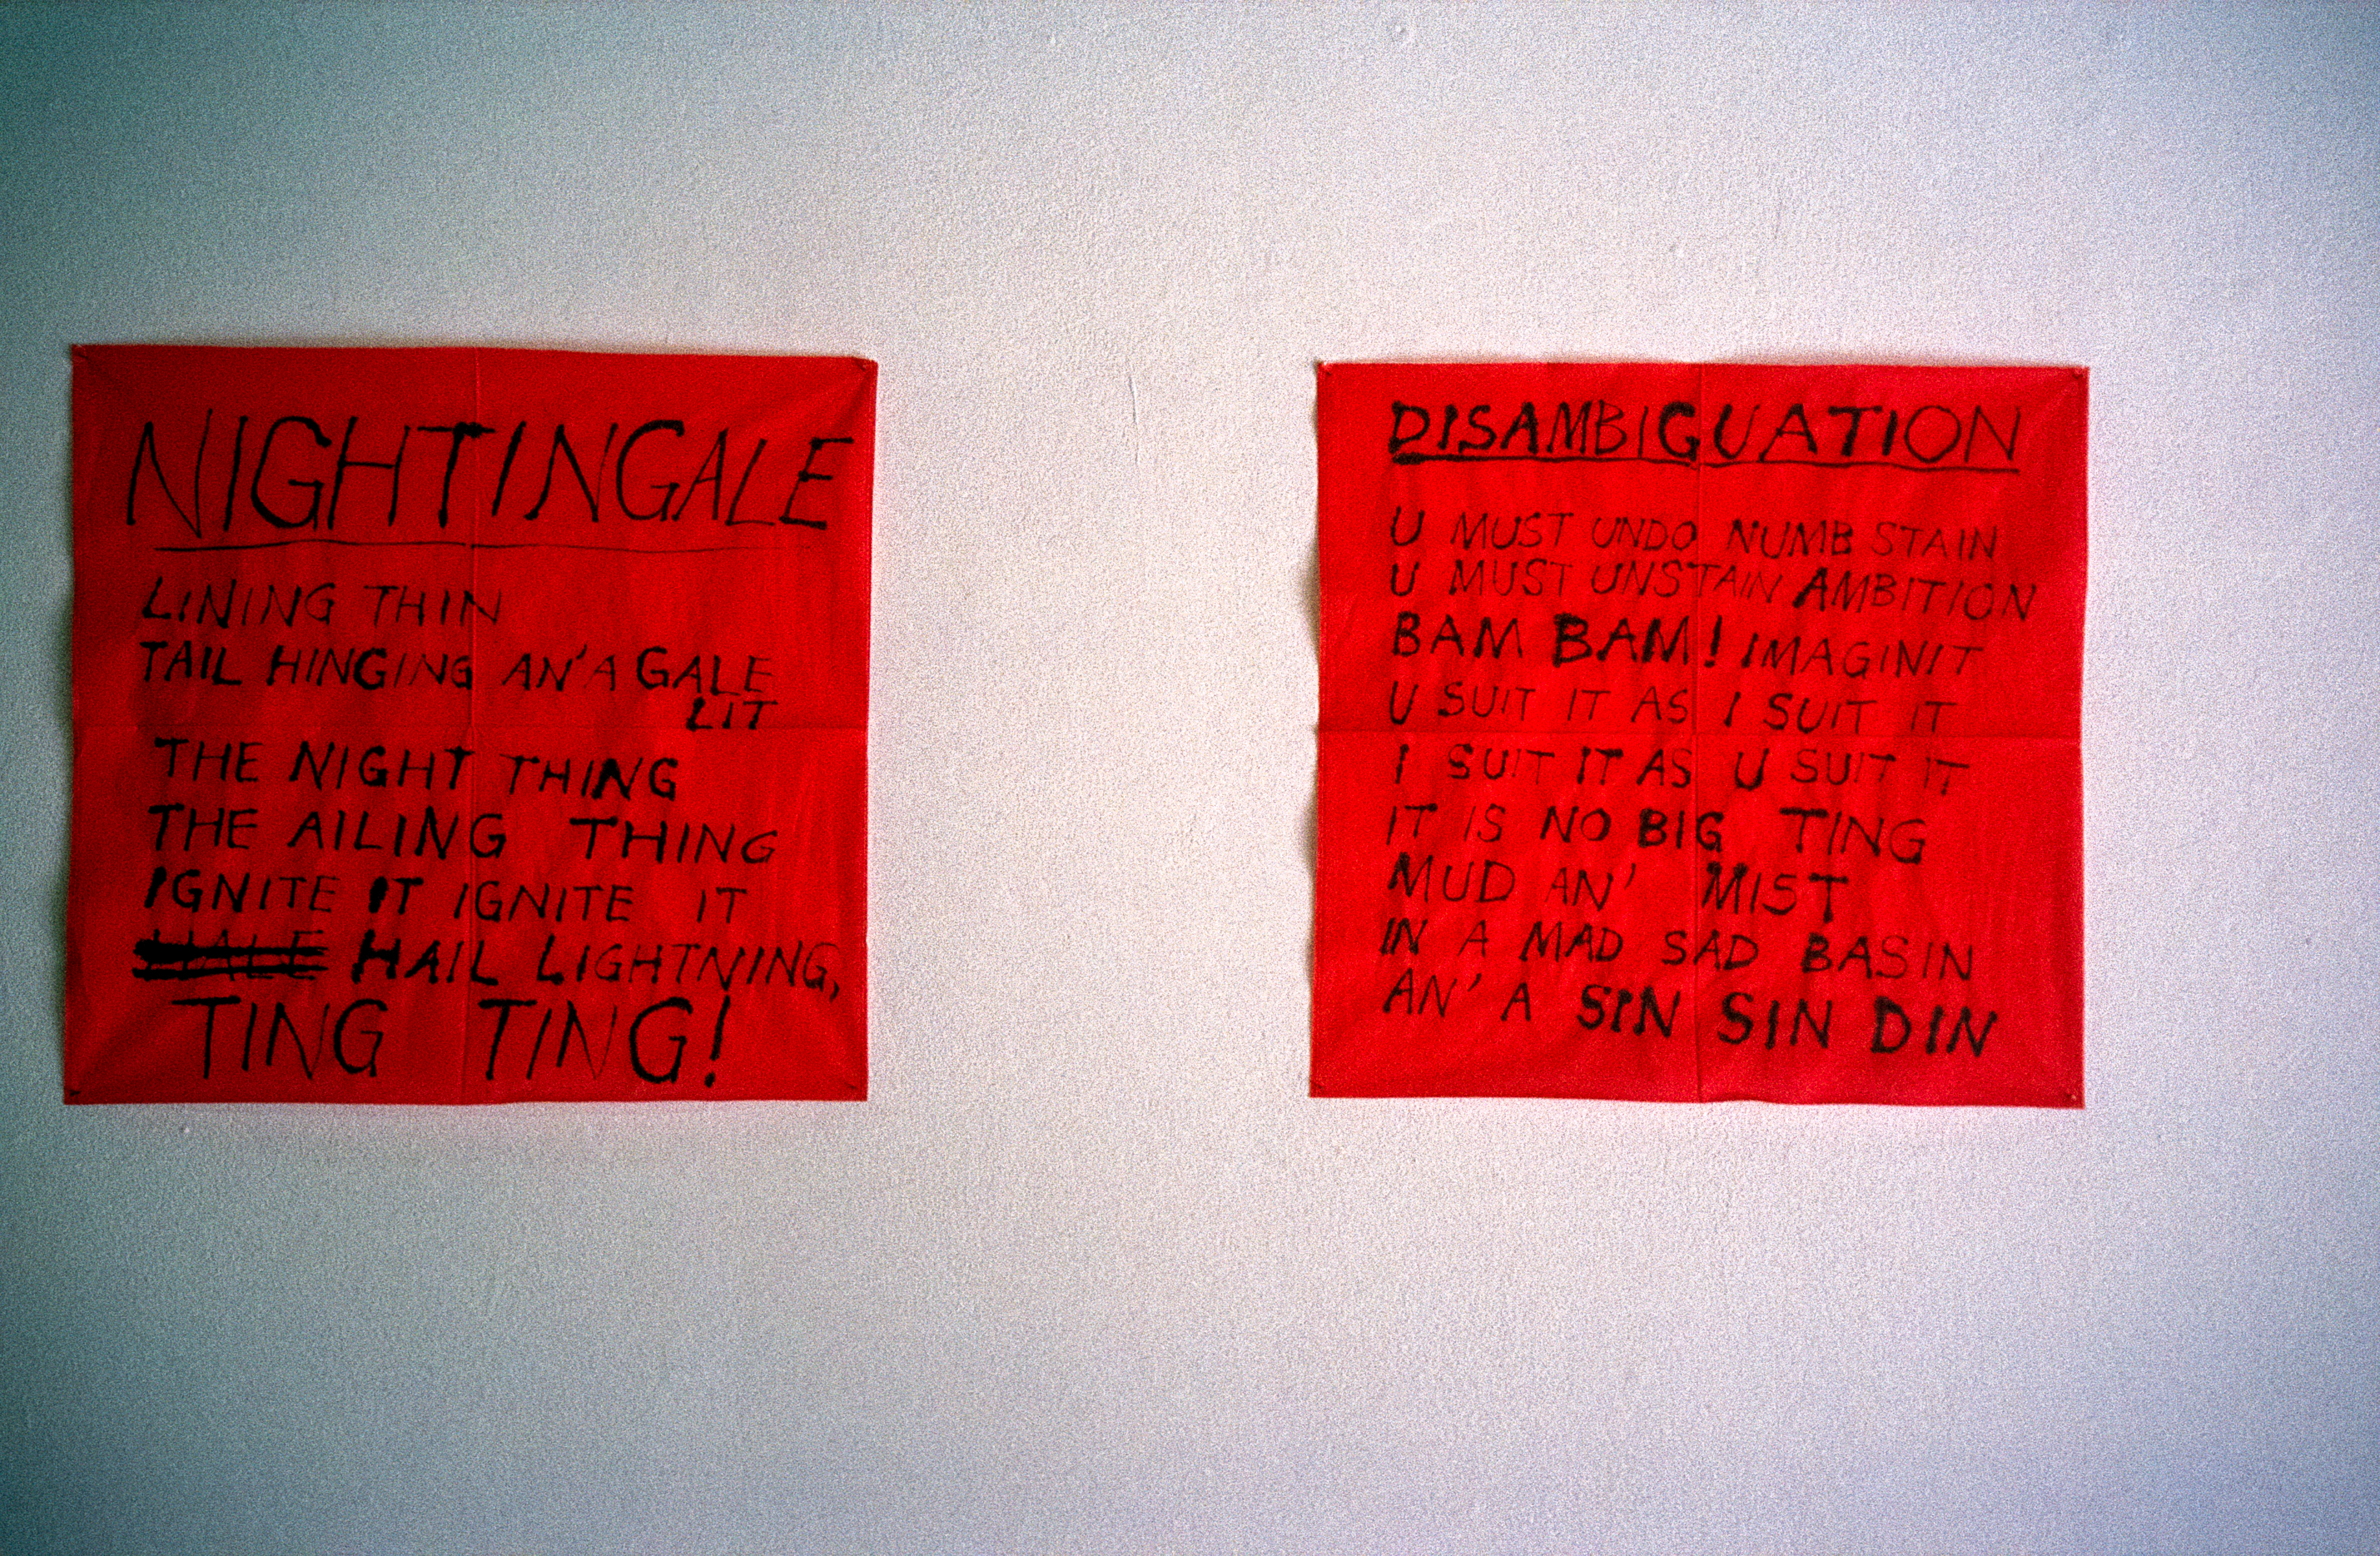 NIGHTINGALE
LINING THIN
TAIL HINGING AN' A GALE
LIT
THE NIGHT THING
THE AILING THING
IGNITE IT IGNITE IT
HALE HAIL LIGHTNING,
TING TING!
DISAMBIGUATION
U MUST UNDO NUMB STAIN
U MUST UNSTAIN AMBITION
BAM BAM! IMAGINIT
U SUIT IT AS I SUIT IT
I SUIT IT AS U SUIT IT
IT IS NO BIG TING
MUD AN' MIST
IN A MAD SAD BASIN
AN' A SIN SIN DIN